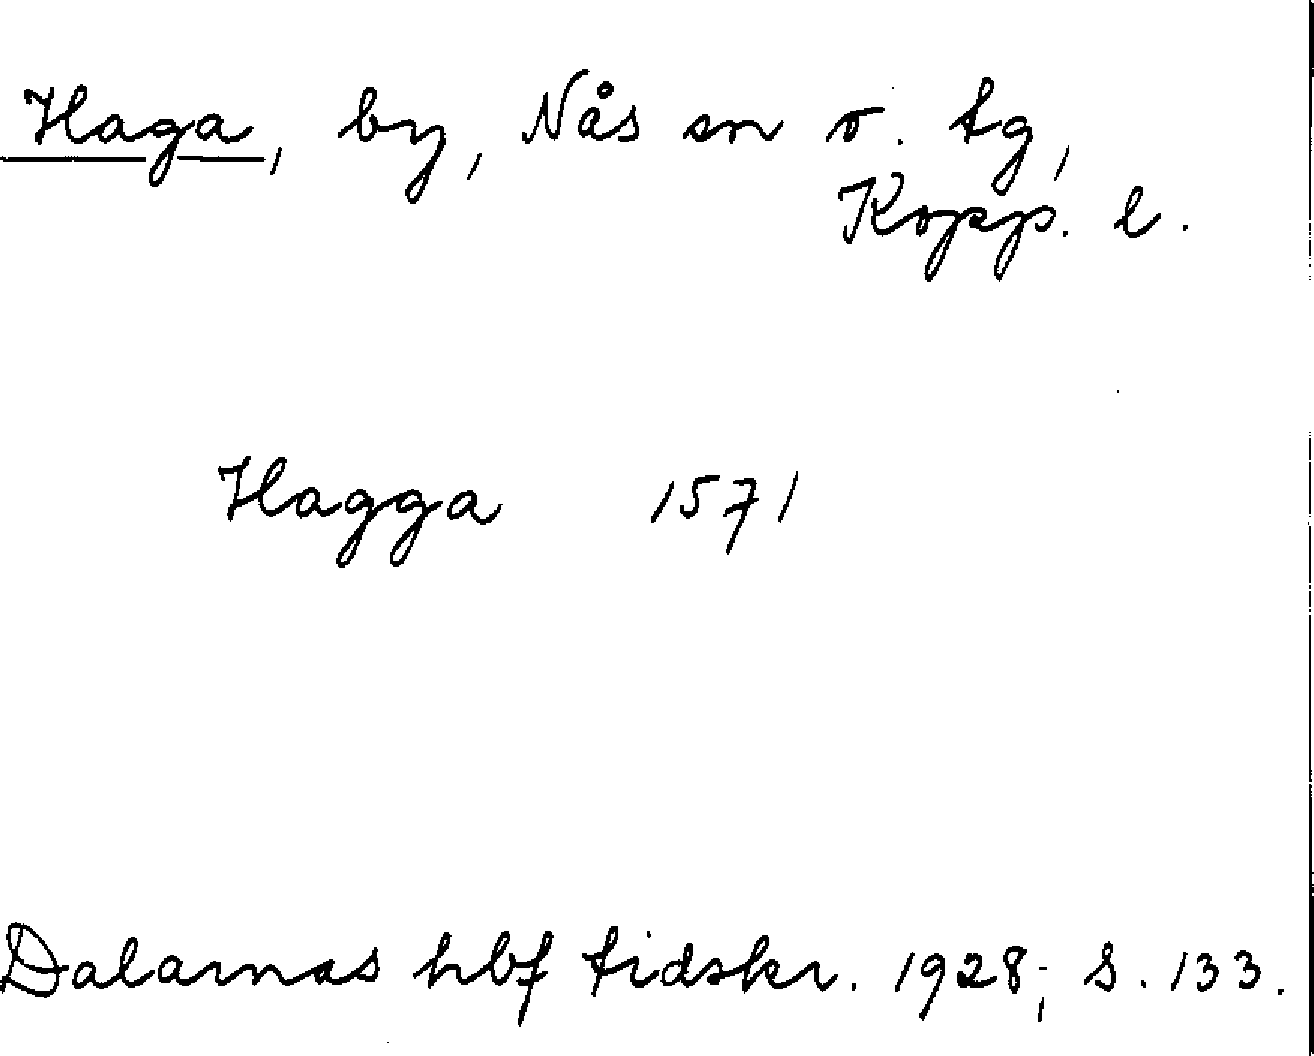 Haga, by, Nås sn o. tg,
Kopp. l.
Hagga 1571
Dalarnas hbf tidskr. 1928, s. 133.